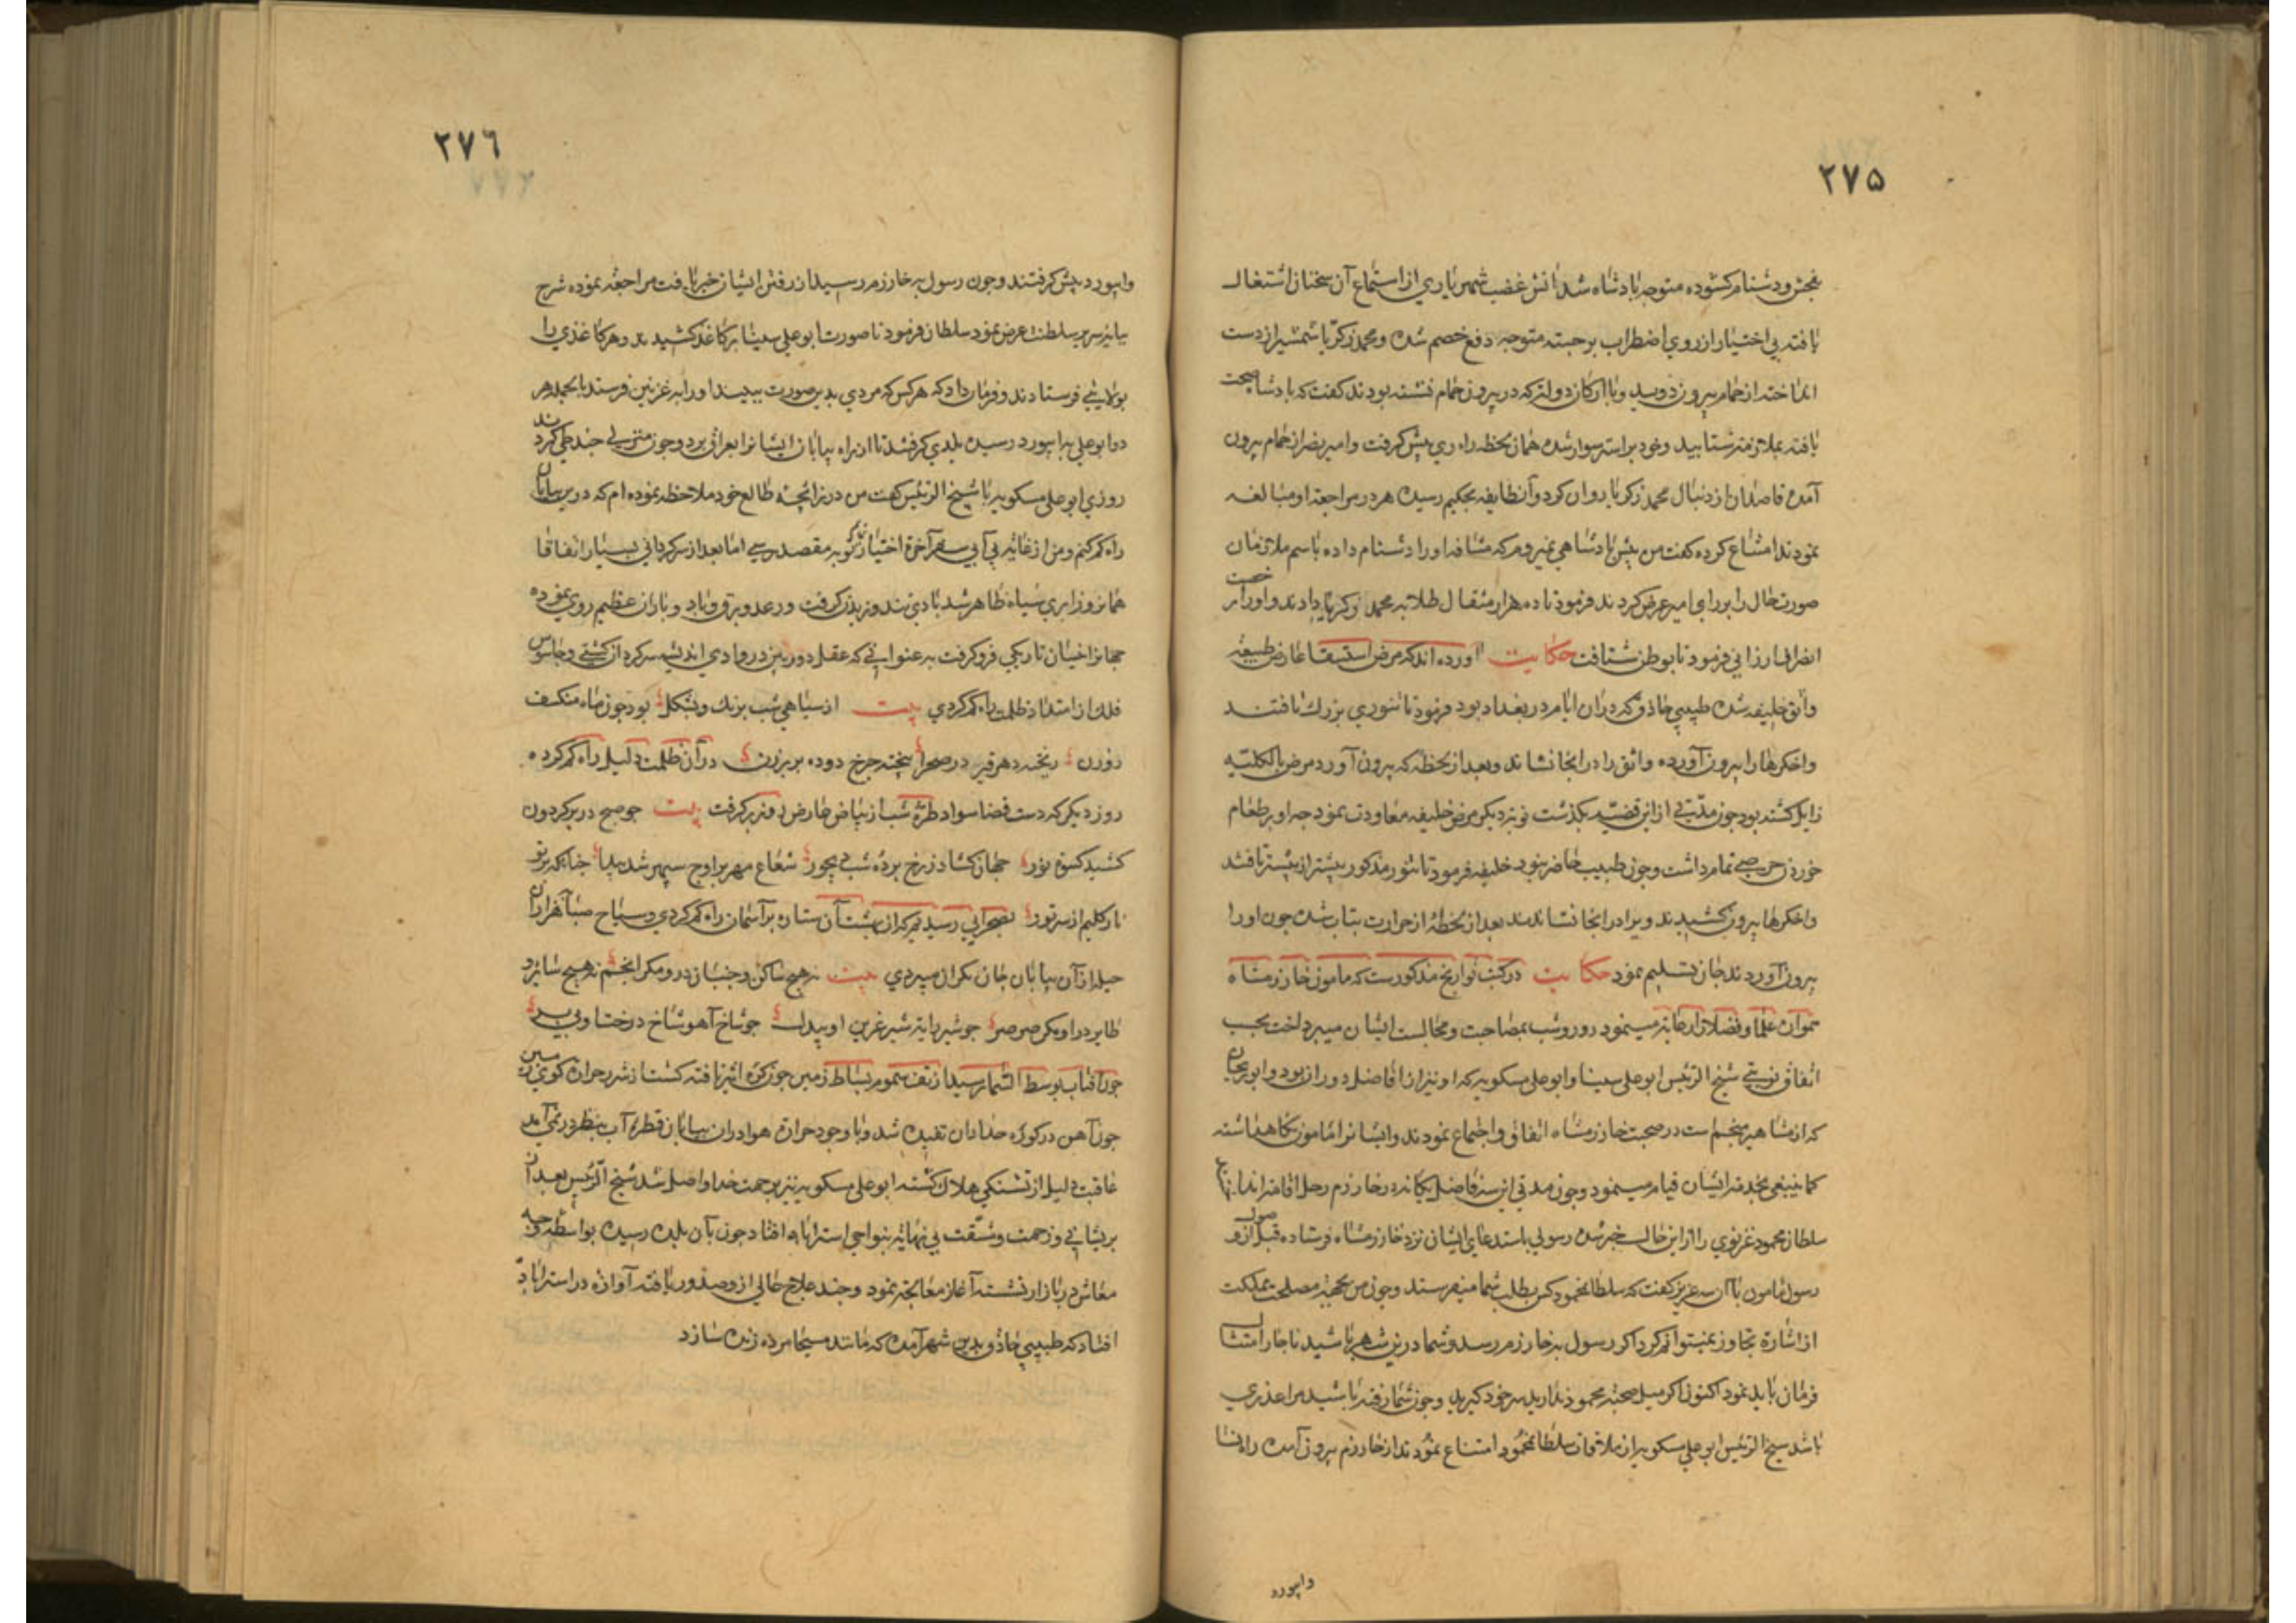 ٢٧۵
بفحش و دشنام کشوده متوجه پادشاه شد آتش غضب شهریاری از استماع آن سخنان اشتعال
یافته بی اختیار از روی اضطراب برجسته متوجه دفع خصم شده و محمد زکریا شمشیر از دست
انداخته از حمام بیرون دوید و با ارکان دولت که در بیرون حمام نشسته بودند کفت که پادشاه صحت
یافته بملازمت شتابید و خود بر استر سوار شده همان لحظه راه ری پیش کرفت و امیر نصر از حمام بیرون
آمده قاصدان از دنبال محمد زکریا روان کرد و آن طایفه بحکیم رسیده هر در مراجعه او مبالغه
نمودند امتناع کرده کفت من پیش پادشاهی نمیروم که مشافه او را دشنام داده باسم ملازمان
صورت حال را برای امیر عرض کردند فرمود تا ده هزار مثقال طلا به محمد زکریا دادند و او را رخصت
انصراف ارزانی فرمود تا بوطن شتافت حکایت آورده اند که مرض استسقا عارض طبیعة
واثق خلیفه شده طبیبی حاذق که در ان ایام در بغداد بود فرمود تا تنوری بزرک تافتند
واخکرها را بیرون آورده واثق را در انجا نشاند و بعد از لحظه که بیرون آورد مرض بالکلیه
زایل کشته بود چون مدتی از این قضیه بکذشت نوبه دیکر مرض خلیفه معاودت نمود چه او بر طعام
خوردن حرصی تمام داشت و چون طبیب حاضر نبود خلیفه فرمود تا تنور مذکور بیشتر از پیشتر تافتند
واخکرها بیرون کشیدند و ویرا در انجا نشاندند بعد از لحظه از حرارت بتاب شده چون او را
بیرون آوردند جان تسلیم نمود حکایت در کتب تواریخ مذکورست که مامون خارزمشاه
علما و فضلا را رعایة مینمود و روز و شب بمصاحبت و مجالست ایشان میپرداخت بحسب
اتفاق نوبتی شیخ الرئیس ابو علی سینا و ابو علی مسکویه که او نیز از افاضل دوران بود و ابو ریحان
که از مشاهیر منجم است در صحبت خارزمشاه اتفاق و اجتماع نمودند و ایشانرا مامون نکاهداشته
کما ینبغی بخدمت ایشان قیام مینمود و چون مدتی این سه فاضل یکانه در خارزم رحل اقامه انداختند
سلطان محمود غزنوی را از این حال خبر شده رسولی باستدعای ایشان نزد خارزمشاه فرستاده قبل از وصول
رسول مامون با آن سه عزیز کفت که سلطان محمود کس بطلب شما میفرستد و چون من بجهة مصلحت مملکت
از اشاره تجاوز نمیتوانم کرد اکر رسول بخارزم رسد و شما درین شهر باشید ناچار امتثال
فرمان باید نمود اکنون اکر میل صحبت محمود ندارید سر خود کیرید و چون شما رفته باشید مرا عذری
باشد شیخ الرئیس ابو علی مسکویه از ملاقات سلطان محمود امتناع نمودند از خارزم بیرون آمده راه نسا
وابیورد
٢٧٦
وابیورد پیش کرفتند و چون رسول به خارزم رسید از رفتن ایشان خبر یافت مراجعه نموده شرح
سلطنت عرض نمود سلطان فرمود تا صورت ابو علی سینا بر کاغذ کشیدند و هر کاغذی را
بولایتی فرستادند و فرمان داد که هرکس که مردی بدین صورت ببیند او را به غزنین فرستد بالجمله هر
دو ابو علی به ابیورد رسیده بلدی کرفتند تا از راه بیابان ایشانرا بعراق برد و چون منزلی چند طی کردند
روزی ابو علی مسکویه با شیخ الرئیس کفت من در زایچه طالع خود ملاحظه نموده ام که درین بیابان
راه کم کنم و من از غایة بی آبی سفر آخرة اختیار کنم تو به مقصد رسی اما بعد از سرکردانی بسیار اتفاقا
همان روز ابری سیاه ظاهر شد بادی تند وزیدن کرفت و رعد و برق و باد و باران عظیم روی نموده
جهانرا چنان تاریکی فرو کرفت به عنوانی که عقل دوربین در وادی اندیشه سرکردان کشتی و جاسوس
فلک از امتداد ظلمت راه کم کردی بیت از سیاهی شب برنک و بشکل بود چون ماه منکسف
روزن ریخته دهر قیر در صحرا بیخته چرخ دوده بر برزن در آن ظلمت دلیل راه کم کرده
روز دیکر که دست قضا سواد طره شب از بیاض عارض روز بر کرفت بیت چو صبح در بر کردون
کشید کسوة نور جهان کشاد ز رخ پرده شب دیجور شعاع مهر بر اوج سپهر شد پیدا چنانکه پرتو
نار کلیم از سر طور بصحرایی رسیدند که از ستاره بر آسمان راه کم کردی و سیاح صبا هزاران
حیله از آن بیابان جان بکران میبردی بیت نه هیچ ساکن و جنبان درو مکر انجم نه هیچ سایر و
طایر درو مکر صرصر چو شیر رایة شیر عرین او بیدل چو شاخ آهو شاخ درخت او بی بر
چون آفتاب بوسط السما رسید از تف سموم بساط زمین چون کره اثیر تافته کشت از شرر حران کوی زمین
چون آهن در کوره حدادان تفیده شد و با وجود حرارة هوا در ان بیابان قطره آب بنظر در نمی آمد
عاقبت دلیل از تشنکی هلاک کشته ابو علی مسکویه نیز برحمت خدا واصل شد شیخ الرئیس بعد از آن
پریشانی و زحمت و مشقت بی نهایة بنواحی استراباد افتاد چون بآن بلده رسیده بواسطه وجه
معاش در بازار نشسته آغاز معالجه نمود و چند علاج حالی ازو صدور یافته آوازه در استراباد
افتاد که طبیبی حاذق بدین شهر آمده که مانند مسیحا مرده زنده سازد